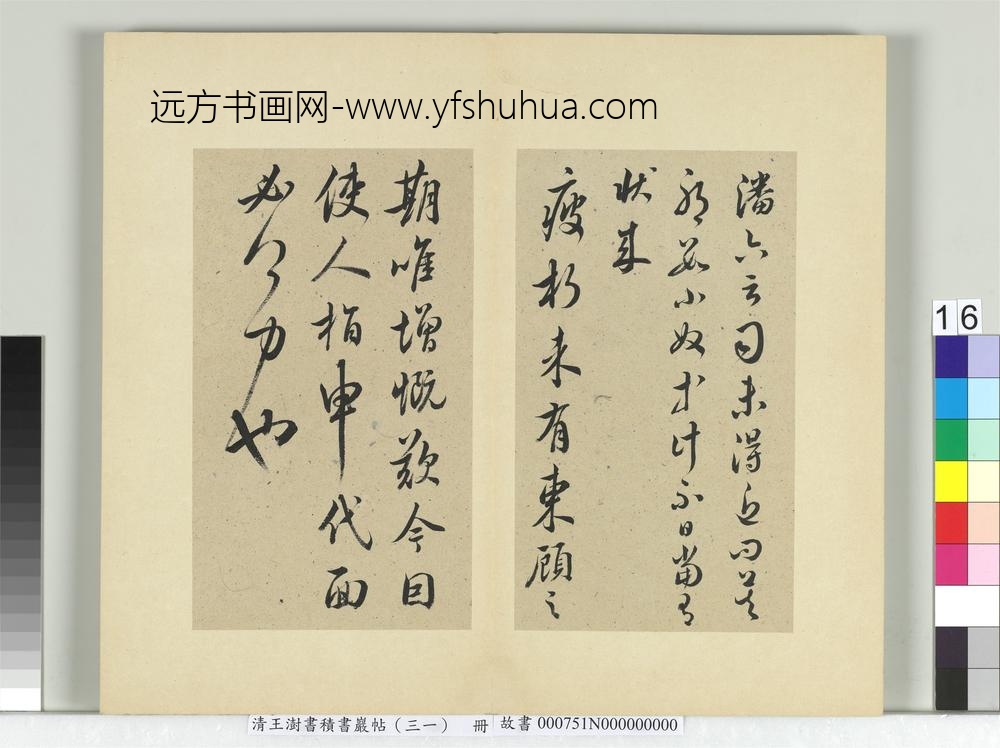 远方书画网-www.yfshuhua.com
潘六云司未得近问莫
耶 小奴 计不日当有
状来
疲朽未有東顧之
期唯增慨歎今因
使人指申代面
必 力也
16
清王澍書積書巖帖（三一） 冊 故書 000751N000000000